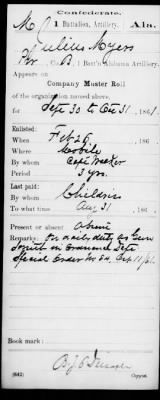 Confederate.
M 1 Battalion, Artillery. Ala.
Julius Myers
Pvt Co. B, 1 Batt'n Alabama Artillery.
Appears on
Company Muster Roll
of the organization named above,
for Sept 30 to Oct 31, 1861.
Enlisted:
When Feb 26, 186
Where Mobile
By whom Capt Walker
Period 3 yrs.
Last paid:
By whom Childrie
To what time Aug 31, 186
Present or absent Absent
Remarks: On daily duty as Gun
Smith in Ordnance Dept
Special Order No 54, Sept 11/61.
Book mark:
(642) Copyist.